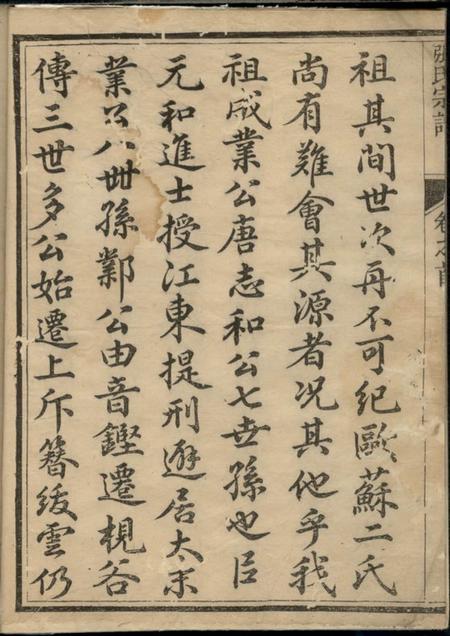 張氏宗譜 卷之首
祖其間世次再不可紀歐蘇二氏
尚有難會其源者况其他乎我
祖成業公唐志和公七世孫也臣
元和進士授江東提刑避居大末
業公八世孫鄴公由音鏗遷梘谷
傳三世多公始遷上斥簪綬雲仍